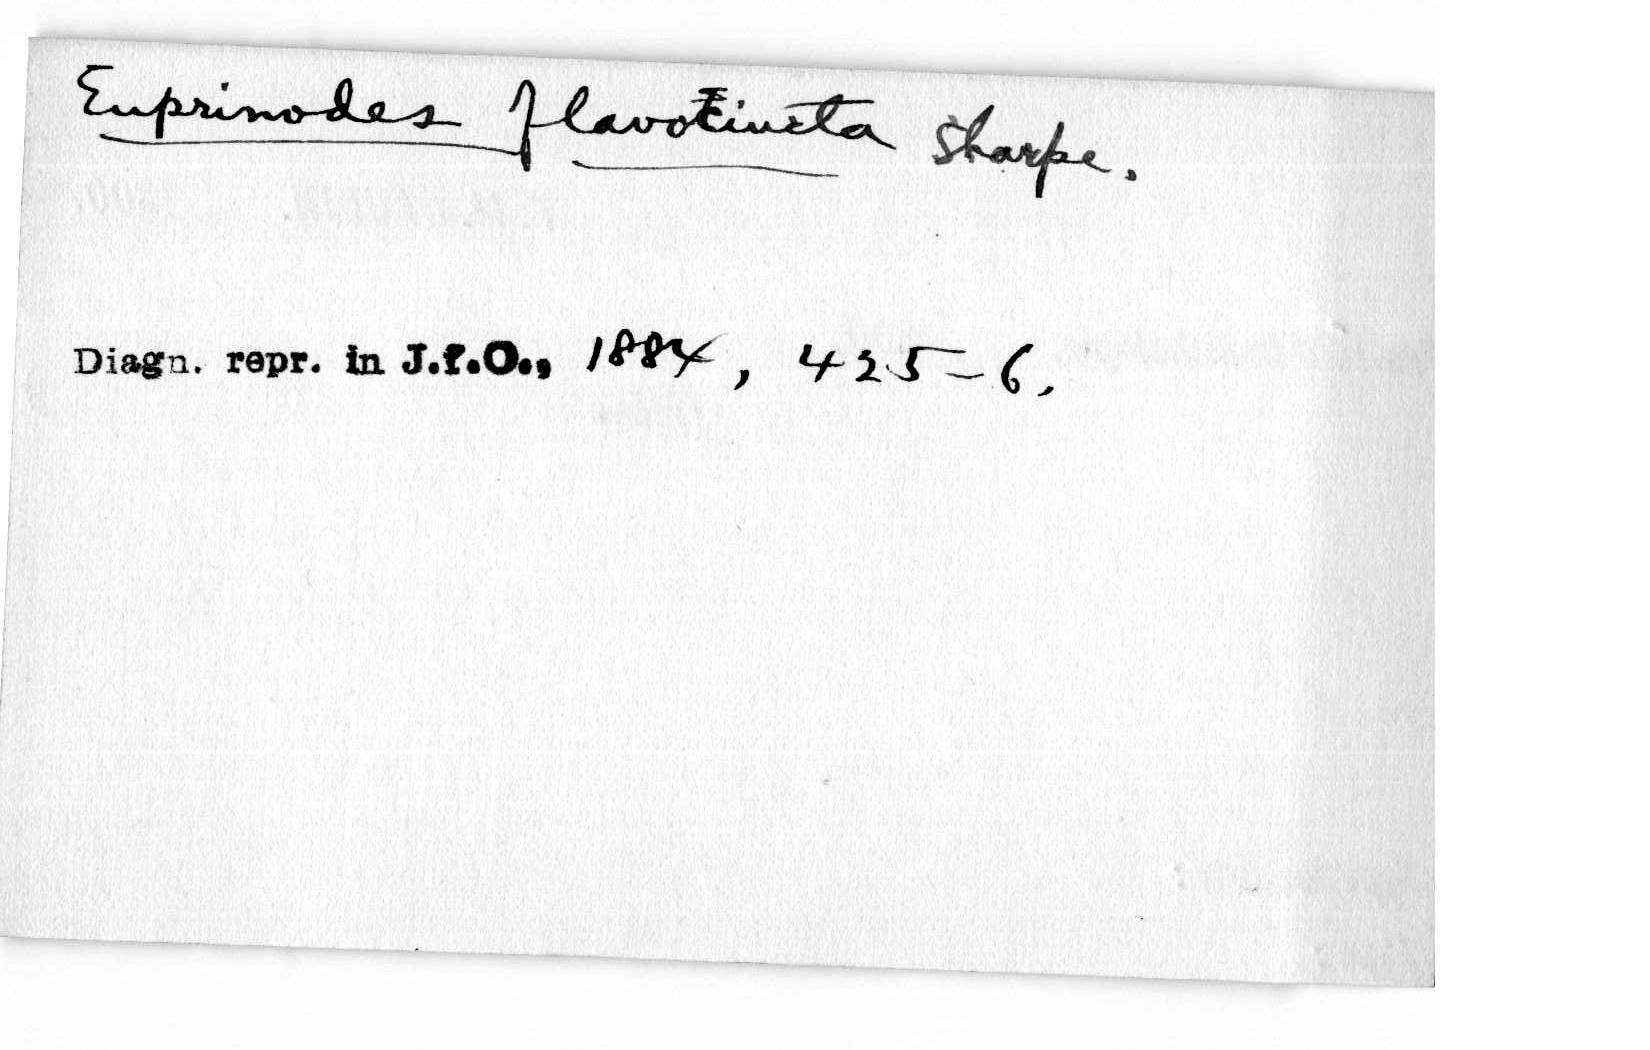 Euprinodes flavotincta Sharpe.
Diagn. repr. in J.f.O., 1884, 425-6.